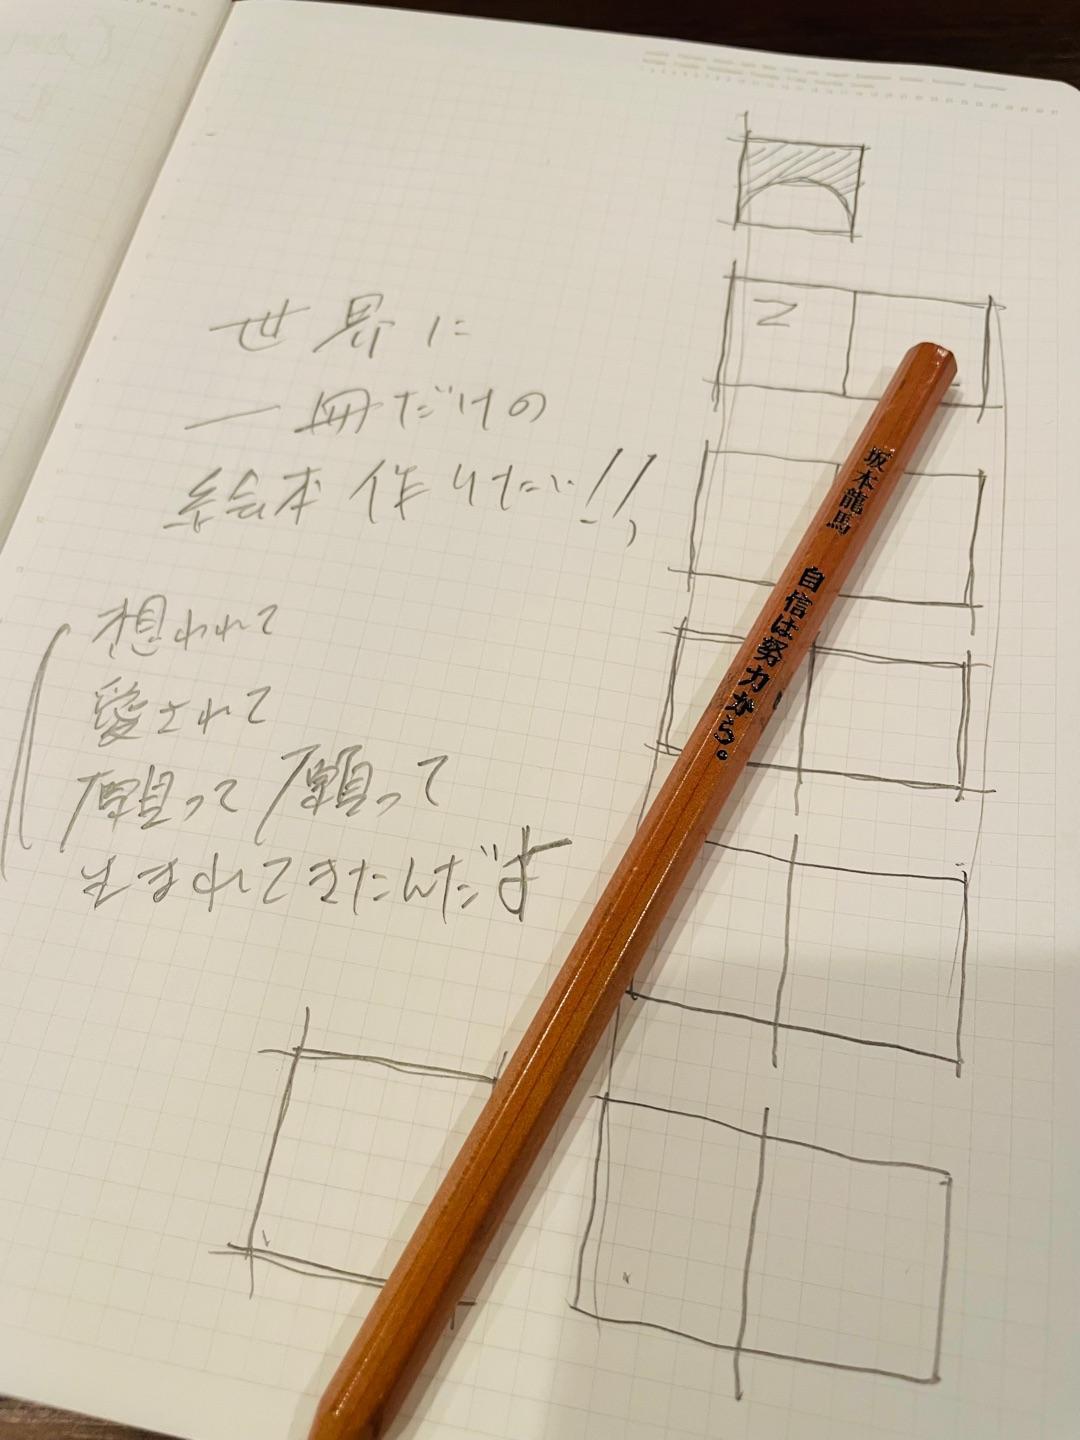 世界に
一冊だけの
絵本作りたい!!
想われて
愛されて
願って願って
生まれてきたんだよ
坂本龍馬 自信は努力から。